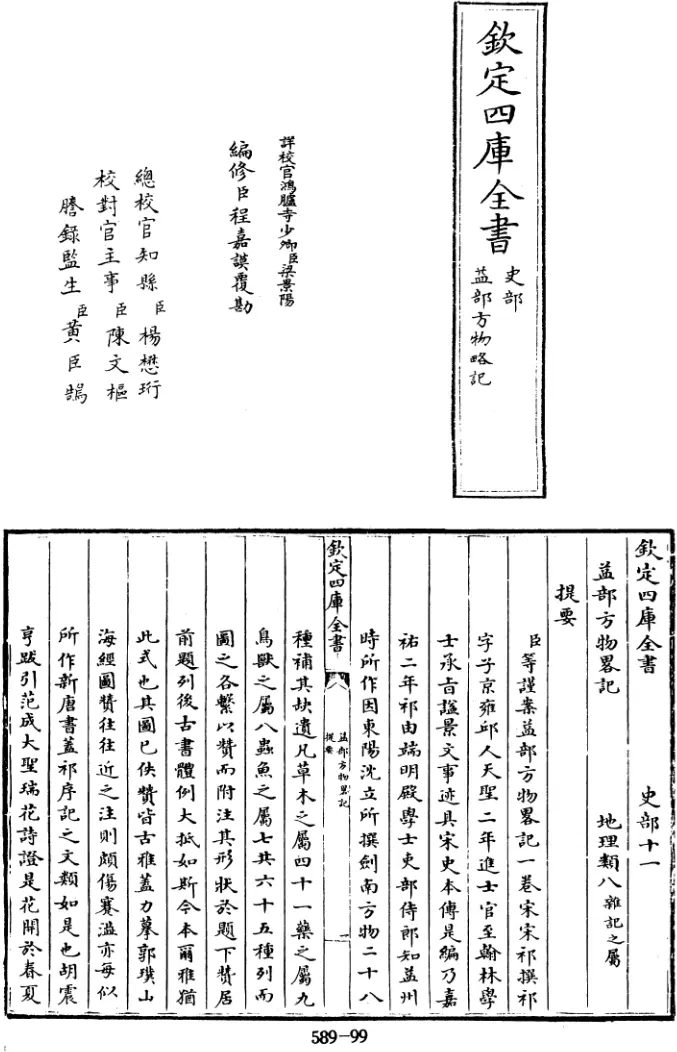 欽定四庫全書
史部
益部方物略記
詳校官鴻臚寺少卿臣梁景陽
編修臣程嘉謨覆勘
總校官知縣臣楊懋珩
校對官主事臣陳文樞
謄錄監生臣黃臣鵠
欽定四庫全書 史部十一
益部方物畧記 地理類八雜記之屬
提要
臣等謹案益部方物畧記一卷宋宋祁撰祁
字子京雍邱人天聖二年進士官至翰林學
士承旨諡景文事迹具宋史本傳是編乃嘉
祐二年祁由端明殿學士吏部侍郎知益州
時所作因東陽沈立所撰劍南方物二十八
欽定四庫全書
益部方物畧記
提要
一
種補其缺遺凡草木之屬四十一藥之屬九
鳥獸之屬八蟲魚之屬七共六十五種列而
圖之各繫以贊而附注其形狀於題下贊居
前題列後古書體例大抵如斯今本爾雅猶
此式也其圖已佚贊皆古雅蓋力摹郭璞山
海經圖贊往往近之注則頗傷謇澁亦每似
所作新唐書蓋祁序記之文類如是也胡震
亨跋引范成大聖瑞花詩證是花開於春夏
589-99